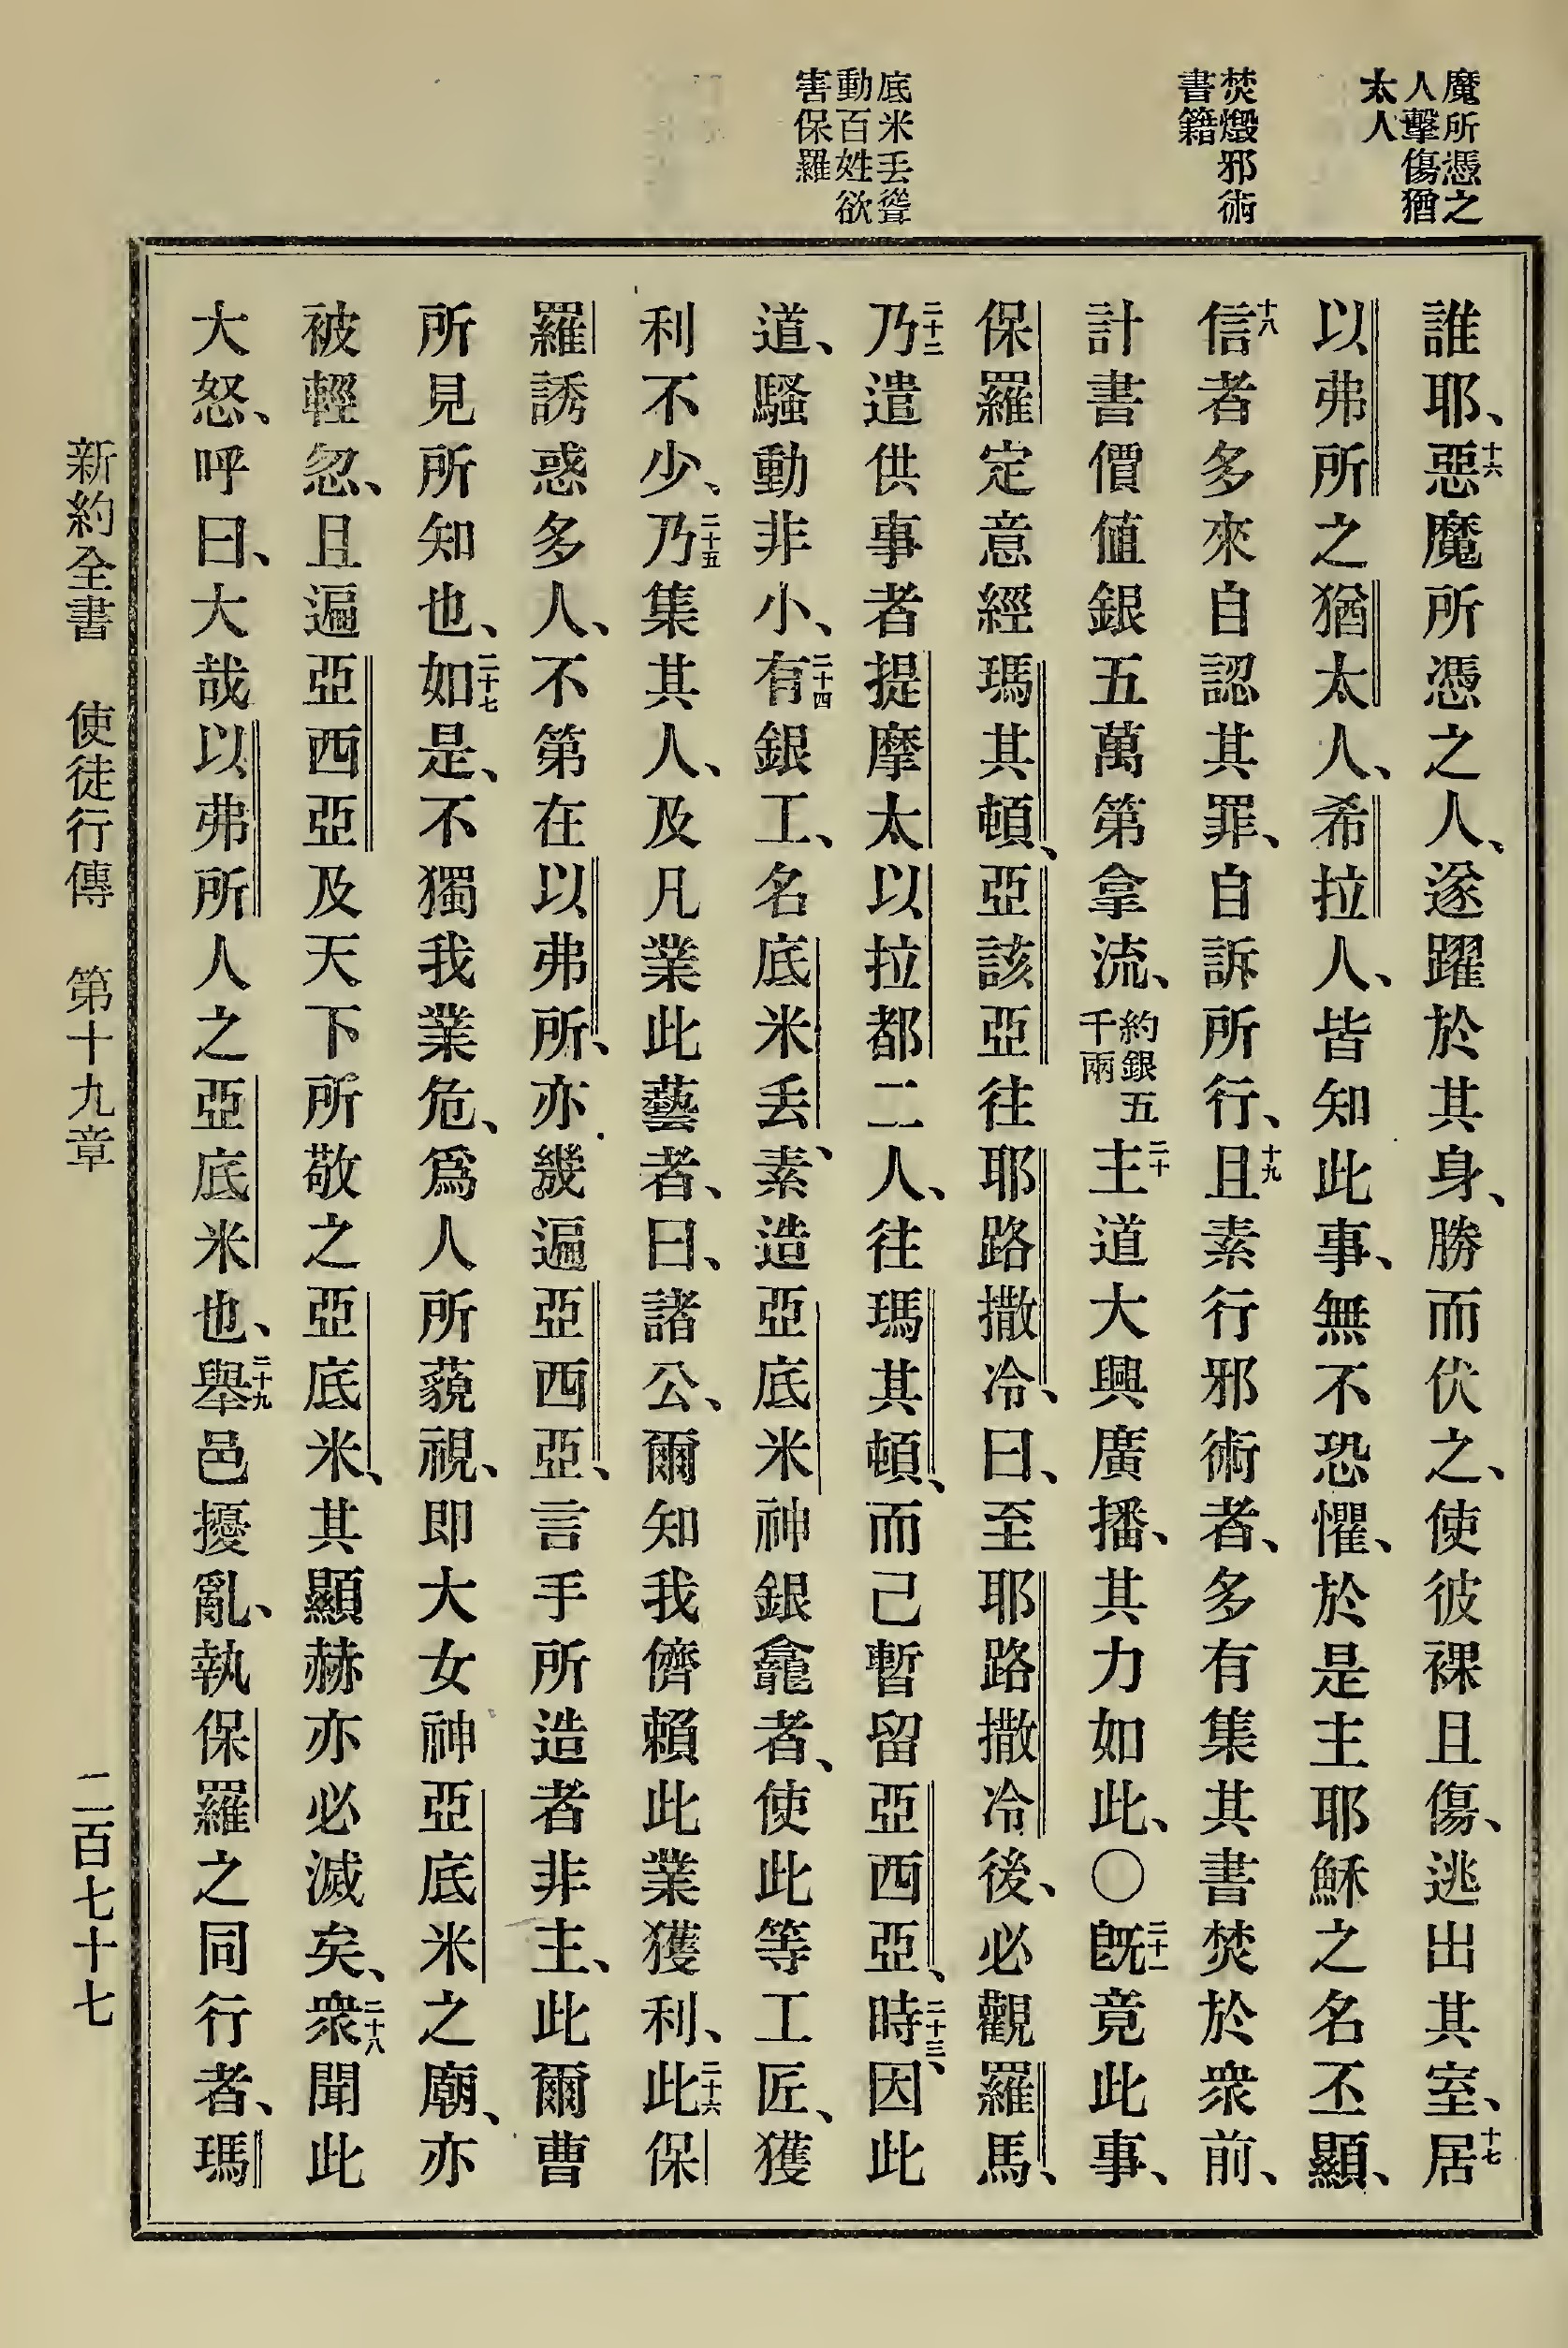 魔所憑之
人擊傷猶
太人
焚燬邪術
書籍
底米丢聳
動百姓欲
害保羅
誰耶、十六惡魔所憑之人、遂躍於其身、勝而伏之、使彼裸且傷、逃出其室、十七居
以弗所之猶太人、希拉人、皆知此事、無不恐懼、於是主耶穌之名丕顯、
十八信者多來自認其罪、自訴所行、十九且素行邪術者、多有集其書焚於衆前、
計書價值銀五萬第拿流、約銀五千兩二十主道大興廣播、其力如此、〇二十一旣竟此事、
保羅定意經瑪其頓、亞該亞往耶路撒冷、曰、至耶路撒冷後、必觀羅馬、
二十二乃遣供事者提摩太以拉都二人、往瑪其頓、而己暫留亞西亞、二十三時、因此
道、騷動非小、二十四有銀工、名底米丢、素造亞底米神銀龕者、使此等工匠、獲
利不少、二十五乃集其人、及凡業此藝者、曰、諸公、爾知我儕賴此業獲利、二十六此保
羅誘惑多人、不第在以弗所、亦幾遍亞西亞、言手所造者非主、此爾曹
所見所知也、二十七如是、不獨我業危、爲人所藐視、即大女神亞底米之廟、亦
被輕忽、且遍亞西亞及天下所敬之亞底米、其顯赫亦必滅矣、二十八衆聞此
大怒、呼曰、大哉以弗所人之亞底米也、二十九舉邑擾亂、執保羅之同行者、瑪
新約全書 使徒行傳 第十九章 二百七十七